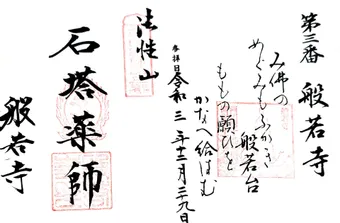 第三番 般若寺
み佛の
めぐみもふかき
般若台
ももの願ひを
かなへ給はむ
参拝日令和三年十二月二十九日
法性山
石塔薬師
般若寺